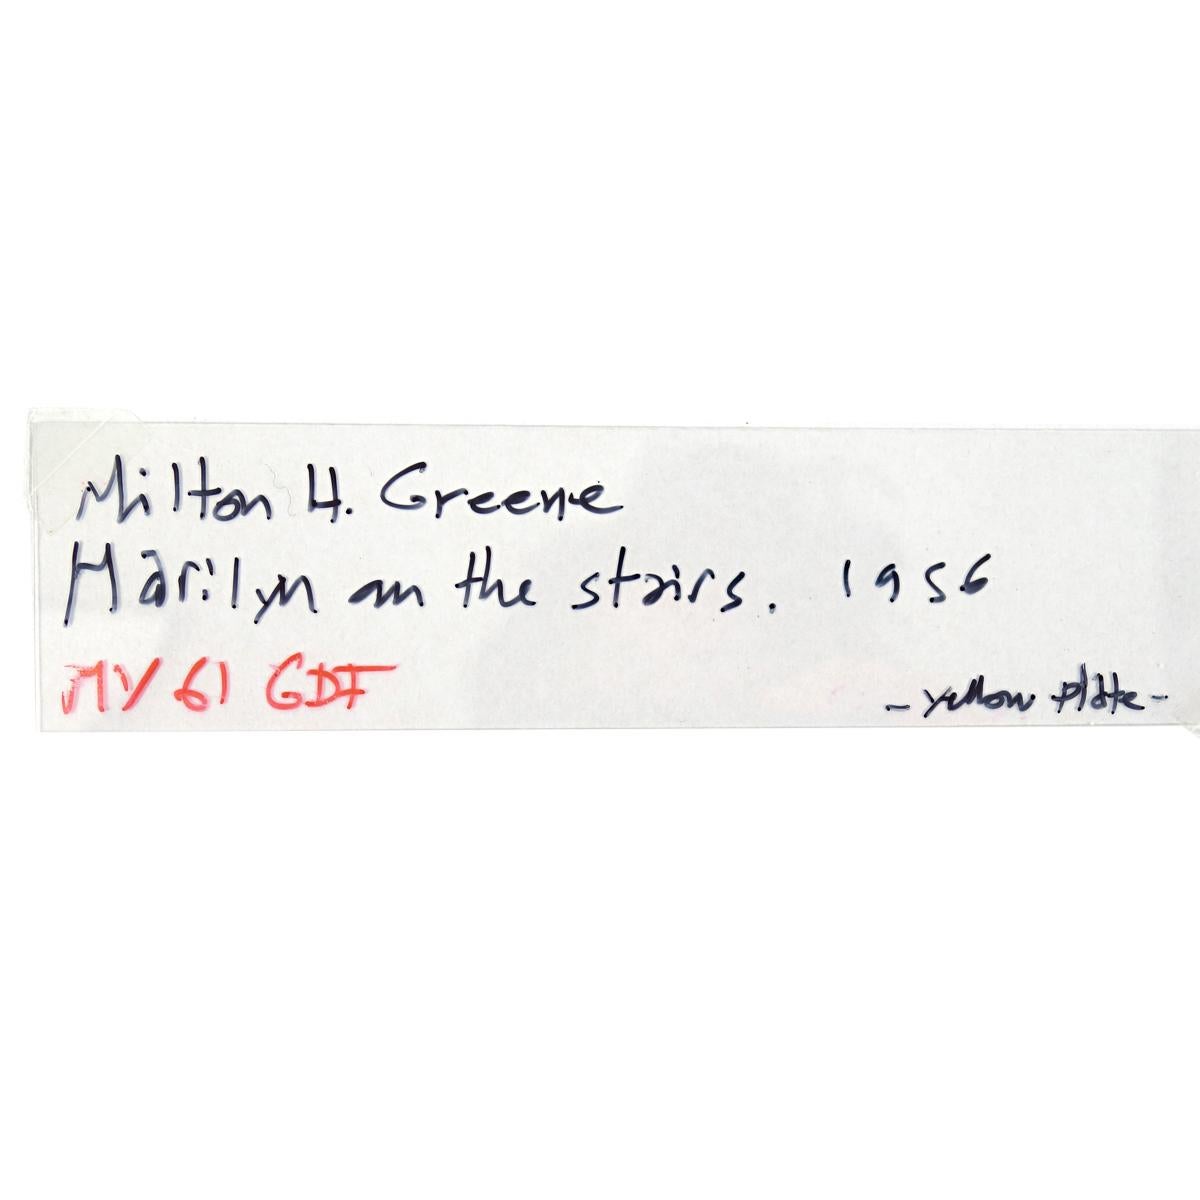 Milton H. Greene
Marilyn on the stairs. 1956
MY 61 GDF
- yellow plate -